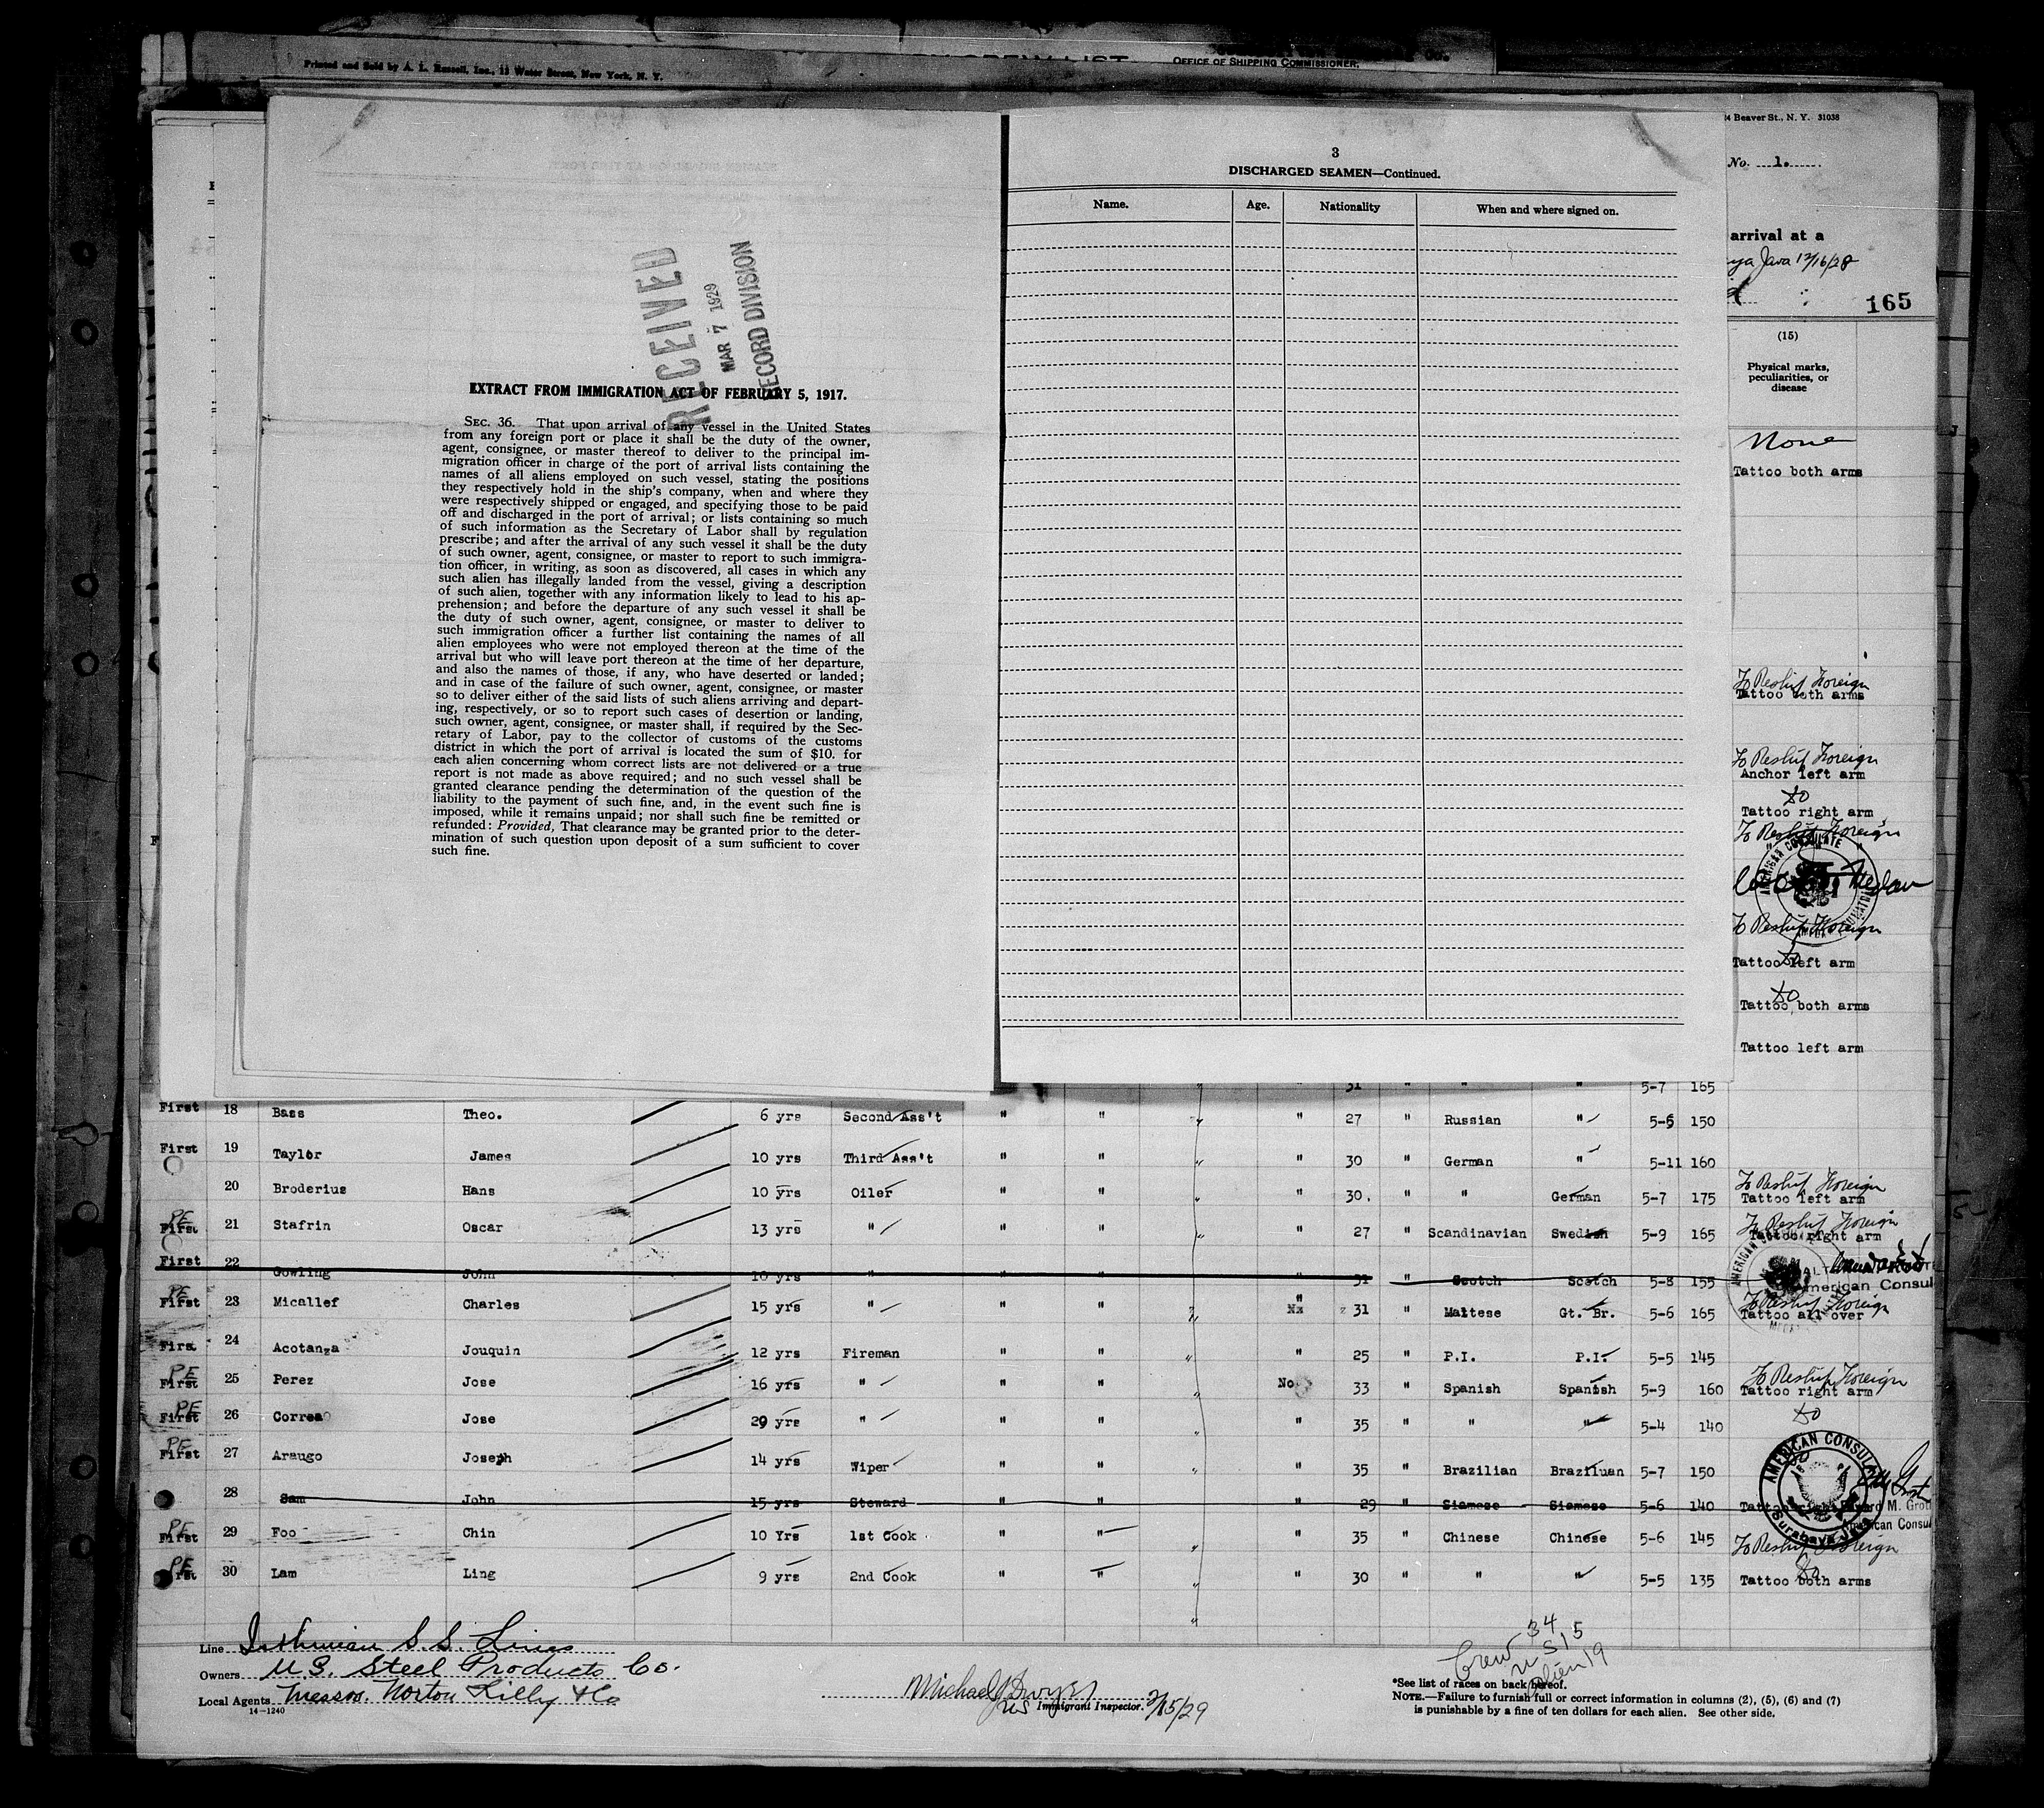 Printed and Sold by A. L. Russell, Inc., 15 Water Street, New York, N. Y.
CREW LIST
OFFICE OF SHIPPING COMMISSIONER.
Beaver St., N. Y. 31038
No. 1.
arrival at a
Java 12/16/28
165
(15)
Physical marks,
peculiarities, or
disease
RECEIVED
MAR 7 1929
RECORD DIVISION
EXTRACT FROM IMMIGRATION ACT OF FEBRUARY 5, 1917.
SEC. 36. That upon arrival of any vessel in the United States
from any foreign port or place it shall be the duty of the owner,
agent, consignee, or master thereof to deliver to the principal im-
migration officer in charge of the port of arrival lists containing the
names of all aliens employed on such vessel, stating the positions
they respectively hold in the ship's company, when and where they
were respectively shipped or engaged, and specifying those to be paid
off and discharged in the port of arrival; or lists containing so much
of such information as the Secretary of Labor shall by regulation
prescribe; and after the arrival of any such vessel it shall be the duty
of such owner, agent, consignee, or master to report to such immigra-
tion officer, in writing, as soon as discovered, all cases in which any
such alien has illegally landed from the vessel, giving a description
of such alien, together with any information likely to lead to his ap-
prehension; and before the departure of any such vessel it shall be
the duty of such owner, agent, consignee, or master to deliver to
such immigration officer a further list containing the names of all
alien employees who were not employed thereon at the time of the
arrival but who will leave port thereon at the time of her departure,
and also the names of those, if any, who have deserted or landed;
and in case of the failure of such owner, agent, consignee, or master
so to deliver either of the said lists of such aliens arriving and depart-
ing, respectively, or so to report such cases of desertion or landing,
such owner, agent, consignee, or master shall, if required by the Sec-
retary of Labor, pay to the collector of customs of the customs
district in which the port of arrival is located the sum of $10. for
each alien concerning whom correct lists are not delivered or a true
report is not made as above required; and no such vessel shall be
granted clearance pending the determination of the question of the
liability to the payment of such fine, and, in the event such fine is
imposed, while it remains unpaid; nor shall such fine be remitted or
refunded: Provided, That clearance may be granted prior to the deter-
mination of such question upon deposit of a sum sufficient to cover
such fine.
3
DISCHARGED SEAMEN—Continued.
Name. Age. Nationality When and where signed on.
None
Tattoo both arms
To Reship Foreign
Tattoo both arms
To Reship Foreign
Anchor left arm
do
Tattoo right arm
To Reship Foreign
AMERICAN CONSULATE
To Reship Foreign
Tattoo left arm
do
Tattoo both arms
do
Tattoo left arm
31 " " " 5-7 165
First 18 Bass Theo. 6 yrs Second Ass't " " " " 27 " Russian " 5-6 150
First 19 Taylor James 10 yrs Third Ass't " " " " 30 " German " 5-11 160
20 Broderius Hans 10 yrs Oiler " " " " 30. " " German 5-7 175 To Reship Foreign Tattoo left arm
PE First 21 Stafrin Oscar 13 yrs " " " " " 27 " Scandinavian Swedish 5-9 165 To Reship Foreign Tattoo right arm
First 22 Gowling John 10 yrs " " 31 " Scotch Scotch 5-8 155
American Consul
PE First 23 Micallef Charles 15 yrs " " " " " 31 " Maltese Gt. Br. 5-6 165 To Reship Foreign Tattoo all over
First 24 Acotanza Jouquin 12 yrs Fireman " " " " 25 " P.I. P.I. 5-5 145
PE First 25 Perez Jose 16 yrs " " " " No 33 " Spanish Spanish 5-9 160 To Reship Foreign Tattoo right arm
PE First 26 Correa Jose 20 yrs " " " " " 35 " " " 5-4 140 do
PE First 27 Araugo Joseph 14 yrs Wiper " " " " 35 " Brazilian Braziluan 5-7 150 do
28 Sam John 15 yrs Steward " " " 29 " Siamese Siamese 5-6 140 Tattoo right
AMERICAN CONSULATE
Surabaya Java
American Consul
PE First 29 Foo Chin 10 Yrs 1st Cook " " " " 35 " Chinese Chinese 5-6 145 To Reship Foreign
PE First 30 Lam Ling 9 yrs 2nd Cook " " " " 30 " " " 5-5 135 do Tattoo both arms
"
Line Isthmian S. S. Lines
Owners U.S. Steel Products Co.
Local Agents Messrs. Norton Lilly & Co
14-1240
Michael J Dwyer
Immigrant Inspector. 2/15/29
Crew 34
US 15
Alien 19
*See list of races on back hereof.
NOTE.—Failure to furnish full or correct information in columns (2), (5), (6) and (7)
is punishable by a fine of ten dollars for each alien. See other side.